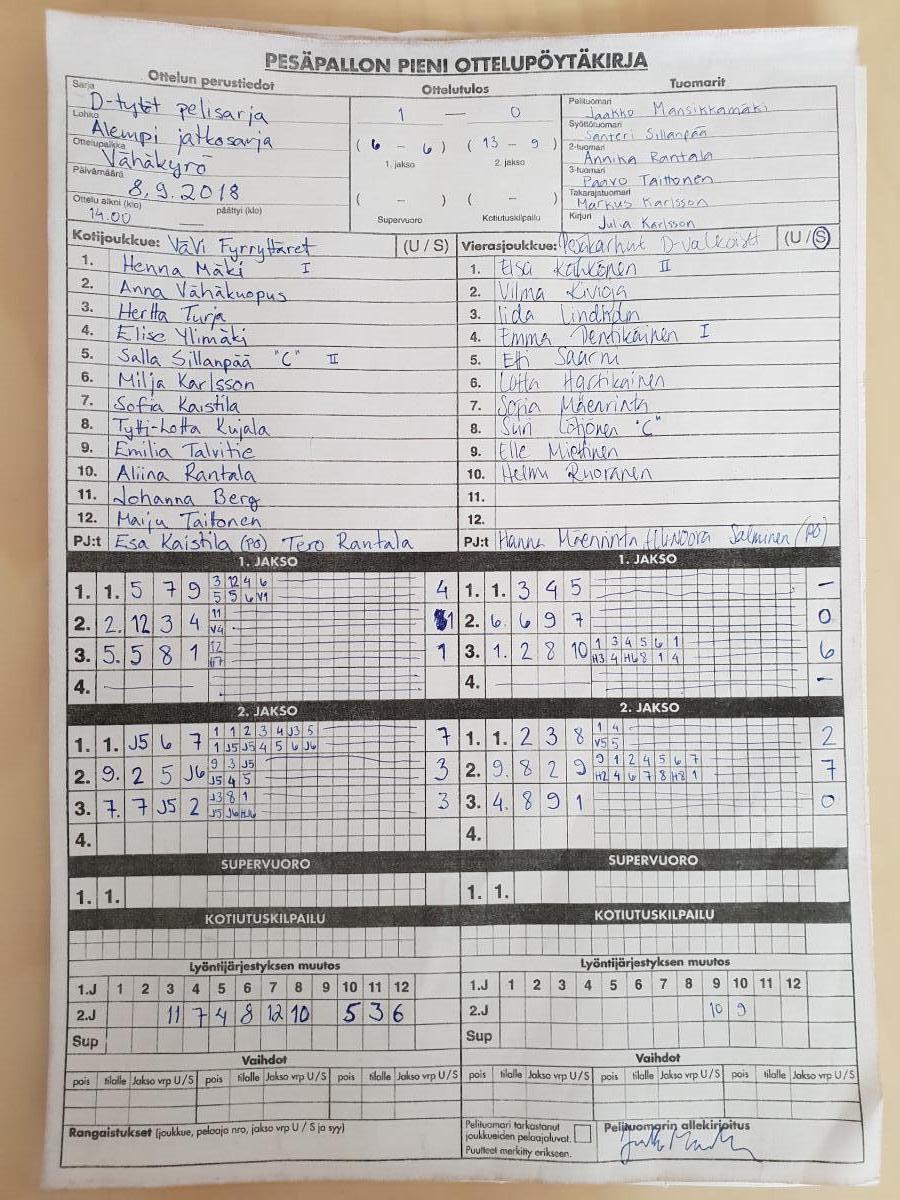 PESÄPALLON PIENI OTTELUPÖYTÄKIRJA
Ottelun perustiedot
Sarja
D-tytöt pelisarja
Lohko
Alempi jatkosarja
Ottelupaikka
Vähäkyrö
Päivämäärä
8.9.2018
Ottelu alkoi (klo) päättyi (klo)
14.00
Ottelutulos
1 — 0
( 6 - 6 ) ( 13 - 9 )
1. jakso 2. jakso
( - ) ( - )
Supervuoro Kotiutuskilpailu
Tuomarit
Pelituomari
Jaakko Mansikkamäki
Syöttötuomari
Santeri Sillanpää
2-tuomari
Annika Rantala
3-tuomari
Paavo Taittonen
Takarajatuomari
Markus Karlsson
Kirjuri
Julia Karlsson
Kotijoukkue: ViVi Fyrryttäret (U / S)
1. Henna Mäki I
2. Anna Vähäkuopus
3. Hertta Turja
4. Elise Ylimäki
5. Salla Sillanpää "C" II
6. Milja Karlsson
7. Sofia Kaistila
8. Tytti-Lotta Kujala
9. Emilia Talvitie
10. Aliina Rantala
11. Johanna Berg
12. Maiju Taittonen
PJ:t Esa Kaistila (PO) Tero Rantala
Vierasjoukkue: Pesäkarhut D-Valkoiset (U / S)
1. Elsa II
2. Vilma
3. Iida
4. Emma I
5. Saarni
6. Lotta Hartikainen
7. Sofia Mäenrinta
8. Siiri "C"
9. Elle Miettinen
10. Helmi Ruoranen
11.
12.
PJ:t Hanna Mäenrinta Salminen (PO)
1. JAKSO
1. 1. 5 7 9 3 12 4 6 4
5 5 6 V1
2. 2. 12 3 4 11 1
V4
3. 5. 5 8 1 12 1
H7
4.
1. JAKSO
1. 1. 3 4 5 –
2. 6. 6 9 7 0
3. 1. 2 8 10 1 3 4 5 6 1 6
H3 4 H6 8 1 4
4. –
2. JAKSO
1. 1. J5 6 7 1 1 2 3 4 J3 5 7
1 J5 J5 4 5 6 J6
2. 9. 2 5 J6 9 3 J5 3
J5 4 5
3. 7. 7 J5 2 J3 8 1 3
J5 J6 HJ6
4.
2. JAKSO
1. 1. 2 3 8 1 4 2
V5 5
2. 9. 8 2 9 9 1 2 4 5 6 7 7
H2 4 6 7 8 H8 1
3. 4. 8 9 1 0
4.
SUPERVUORO
1. 1.
SUPERVUORO
1. 1.
KOTIUTUSKILPAILU
KOTIUTUSKILPAILU
Lyöntijärjestyksen muutos
1.J 1 2 3 4 5 6 7 8 9 10 11 12
2.J 11 7 4 8 12 10 5 3 6
Sup
Lyöntijärjestyksen muutos
1.J 1 2 3 4 5 6 7 8 9 10 11 12
2.J 10 9
Sup
Vaihdot
pois tilalle Jakso vrp U / S pois tilalle Jakso vrp U / S pois tilalle Jakso vrp U / S
Vaihdot
pois tilalle Jakso vrp U / S pois tilalle Jakso vrp U / S pois tilalle Jakso vrp U / S
Rangaistukset (joukkue, pelaaja nro, jakso vrp U / S ja syy)
Pelituomari tarkastanut
joukkueiden pelaajaluvat.
Puutteet merkitty erikseen.
Pelituomarin allekirjoitus